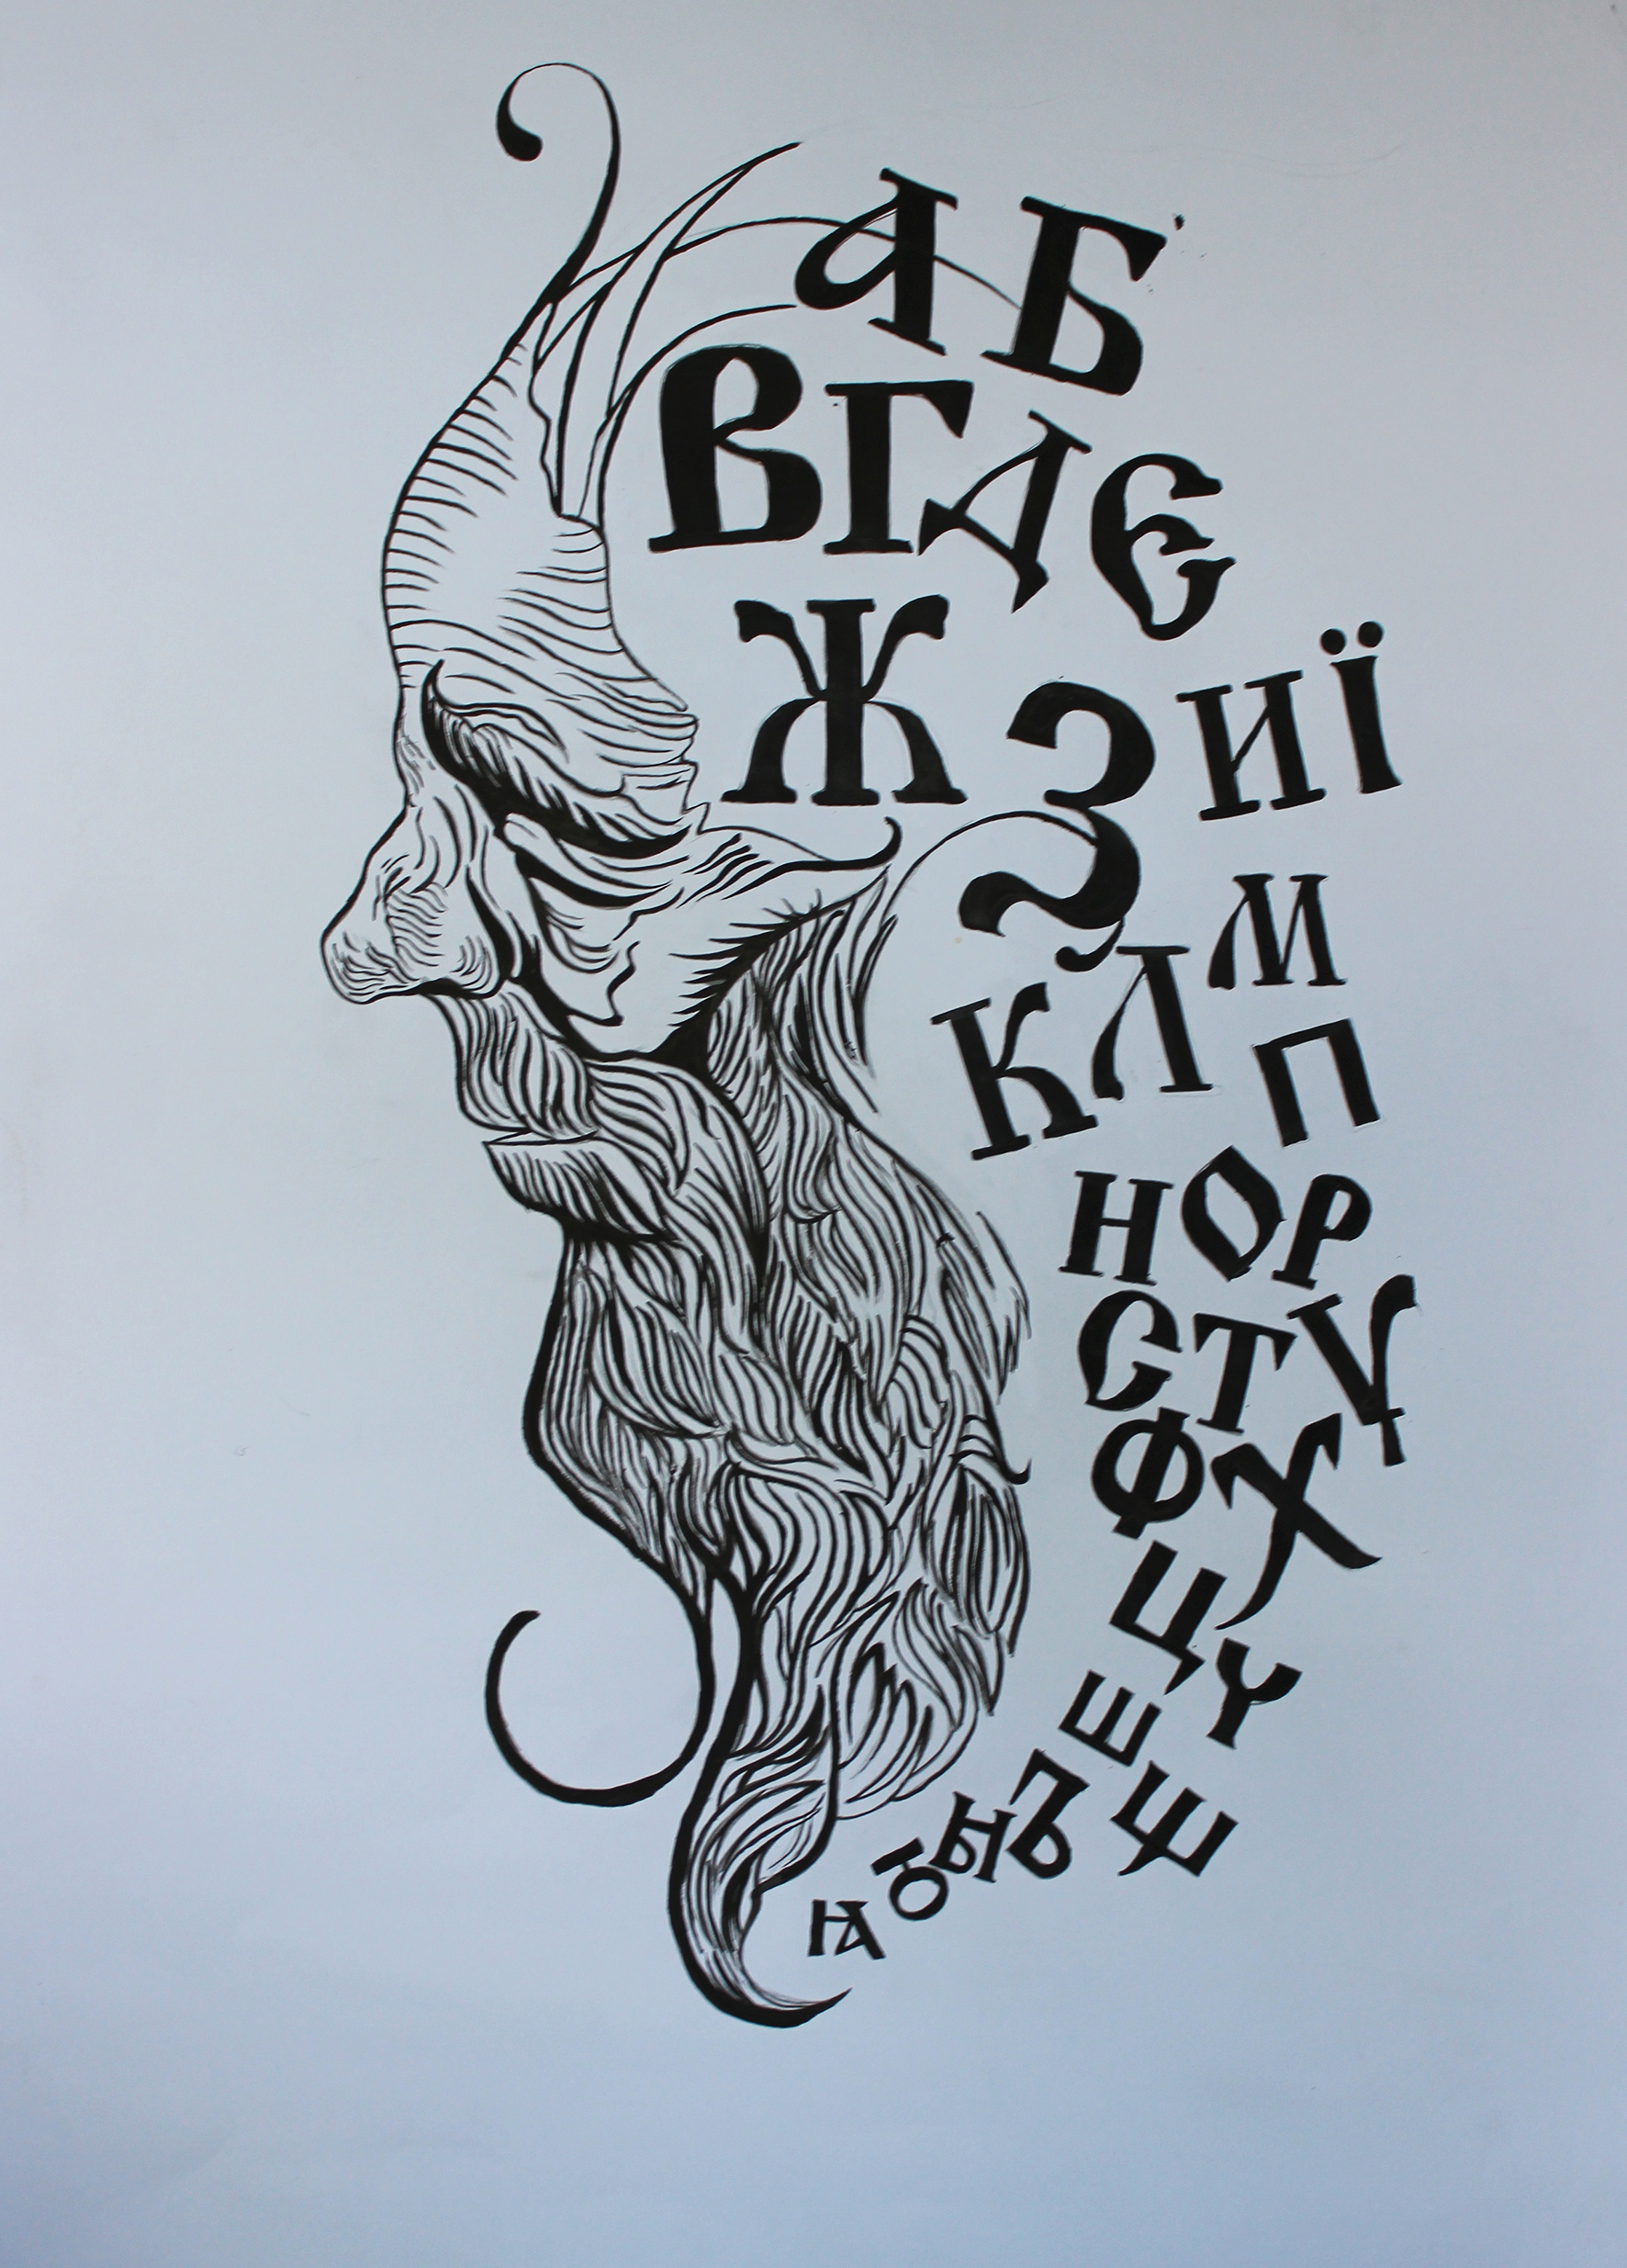 А Б
В Г Д Є
Ж З И Ї
К Л М
Н О П Р
С Т У
Ф Х
Ц Ч
Ш Щ
Ъ
Ы
Ю
Ꙗ